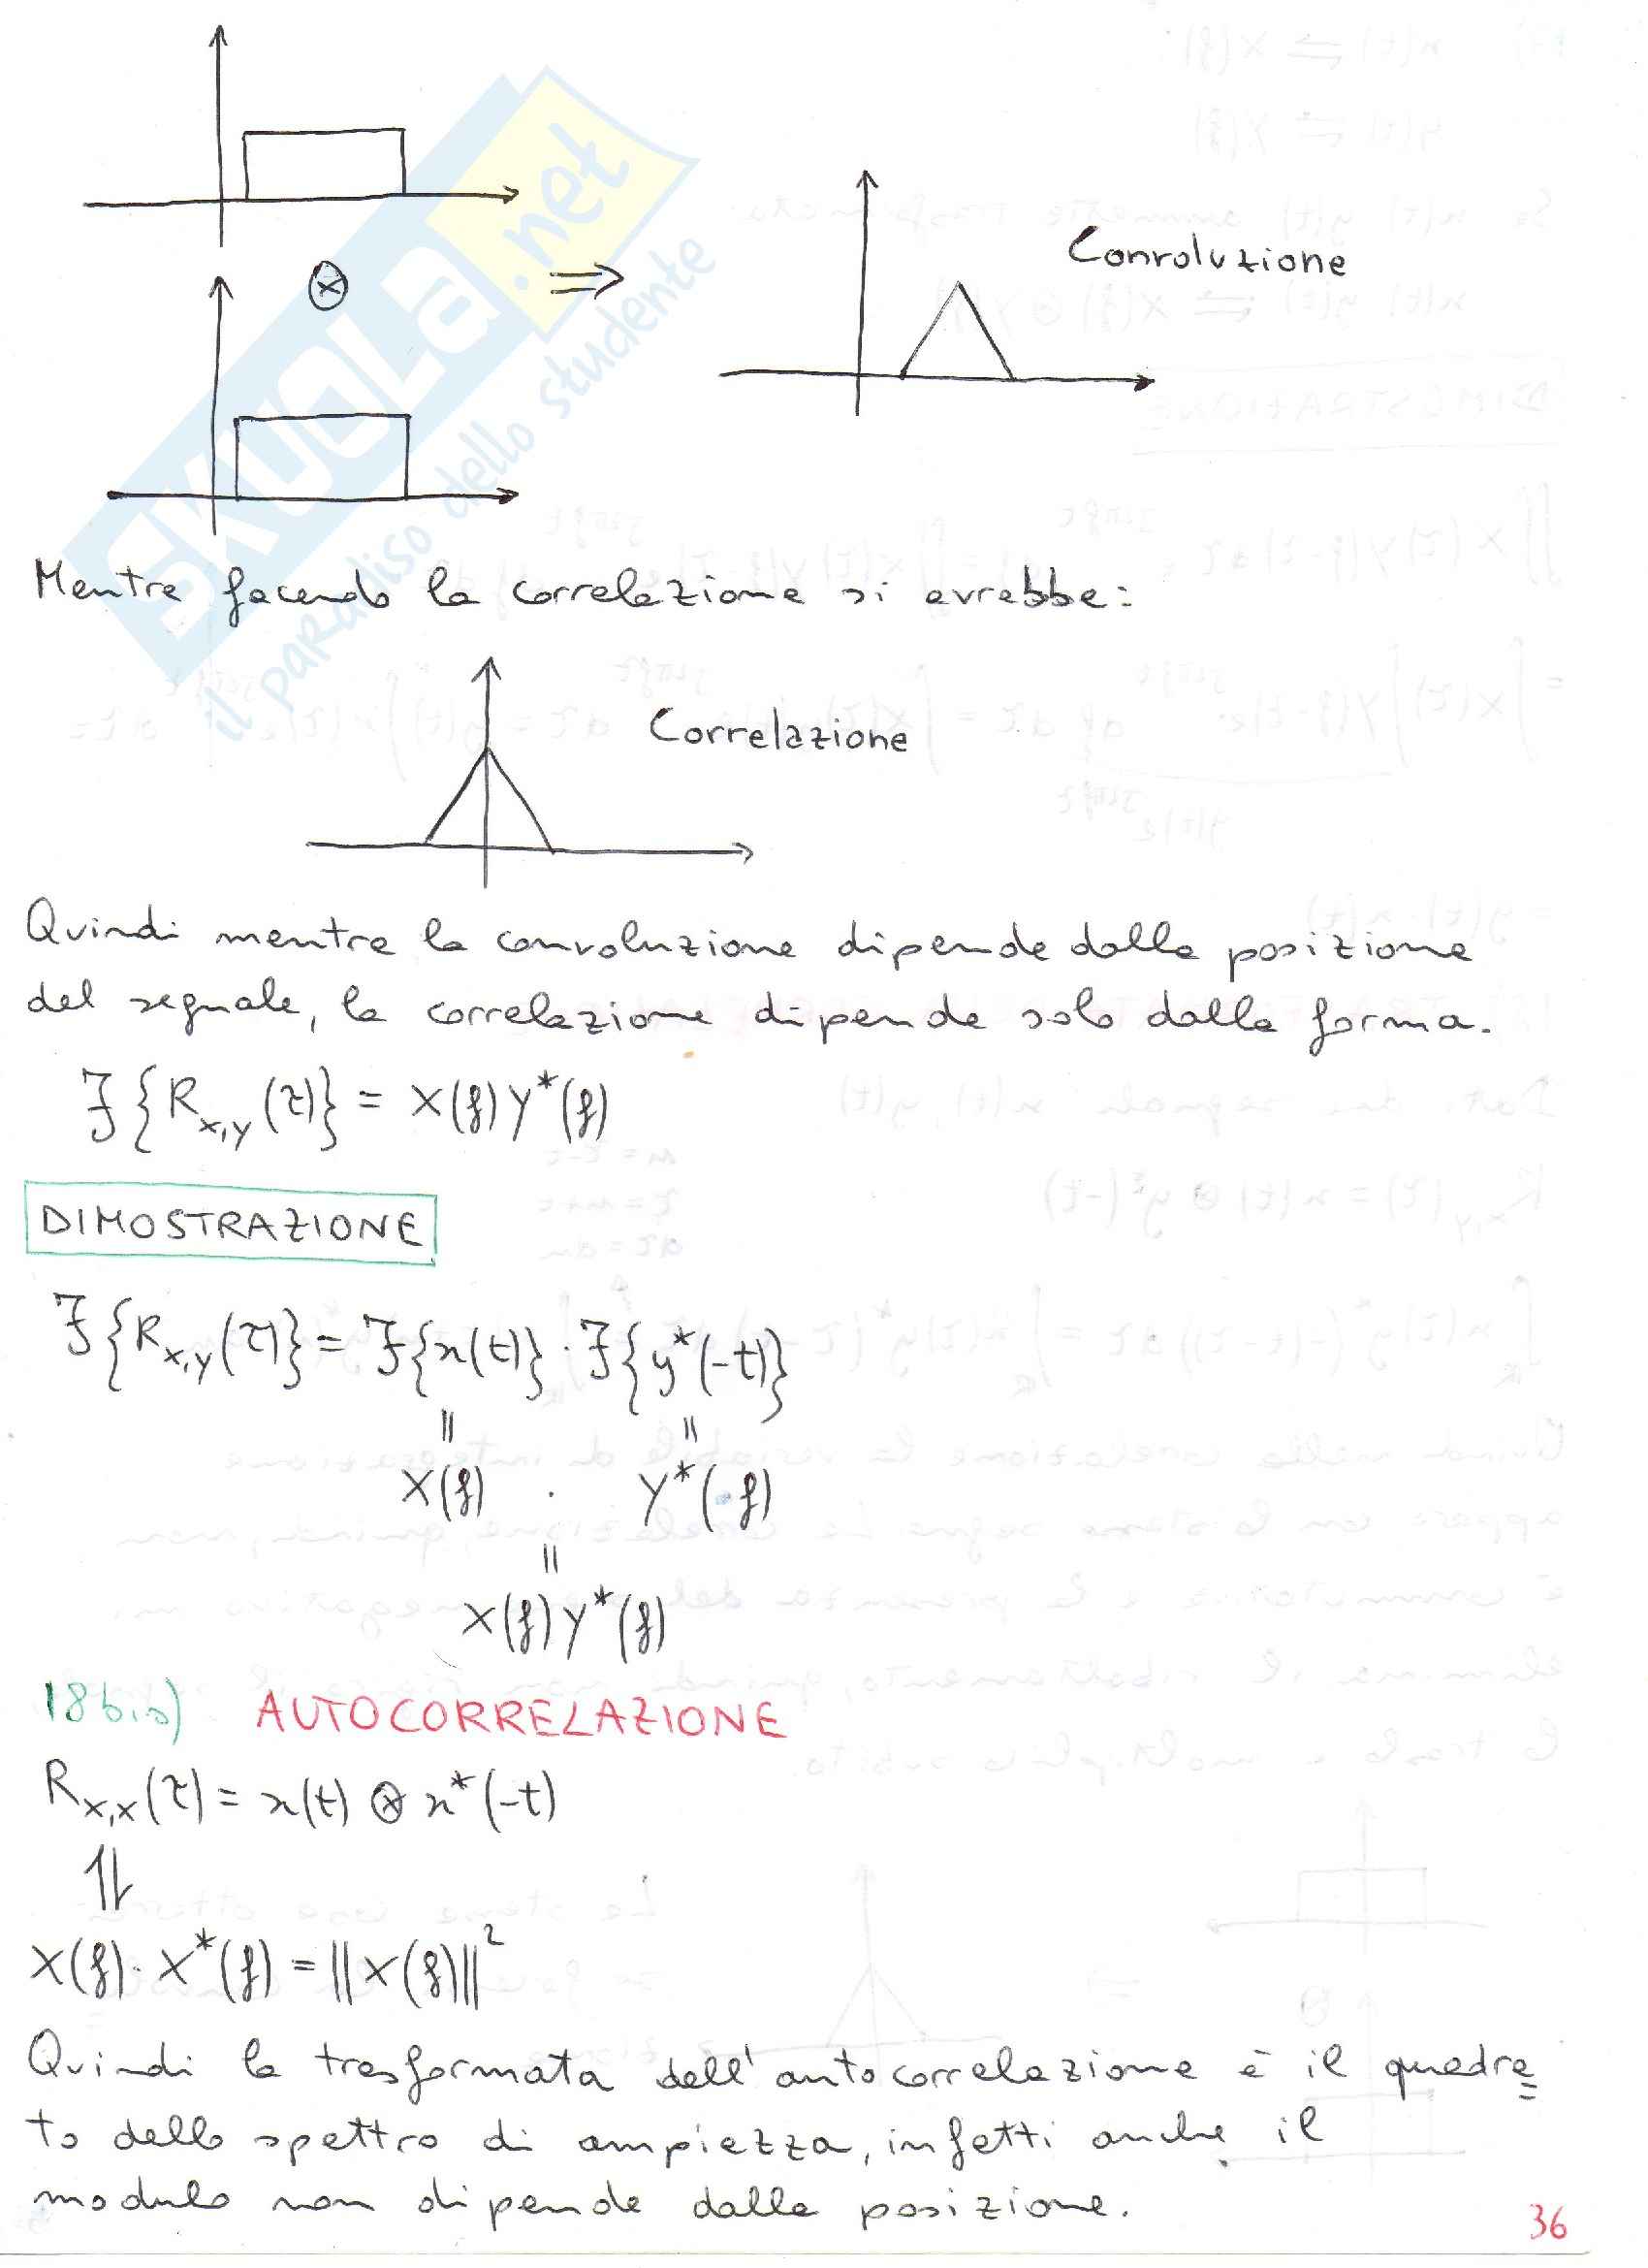 ⊗
⇒
Convoluzione
SKUOLA.net
il paradiso dello studente
Mentre facendo la correlazione si avrebbe:
Correlazione
Quindi mentre la convoluzione dipende dalla posizione
del segnale, la correlazione dipende solo dalla forma.
F{R_x,y(τ)} = X(f)Y*(f)
DIMOSTRAZIONE
F{R_x,y(τ)} = F{x(t)} · F{y*(-t)}
|| ||
X(f) · Y*(f)
||
X(f)Y*(f)
18bis) AUTOCORRELAZIONE
R_x,x(τ) = x(t) ⊗ x*(-t)
⥮
X(f) · X*(f) = ||X(f)||²
Quindi la trasformata dell'autocorrelazione è il quadra=
to dello spettro di ampiezza, infatti anche il
modulo non dipende dalla posizione.
36